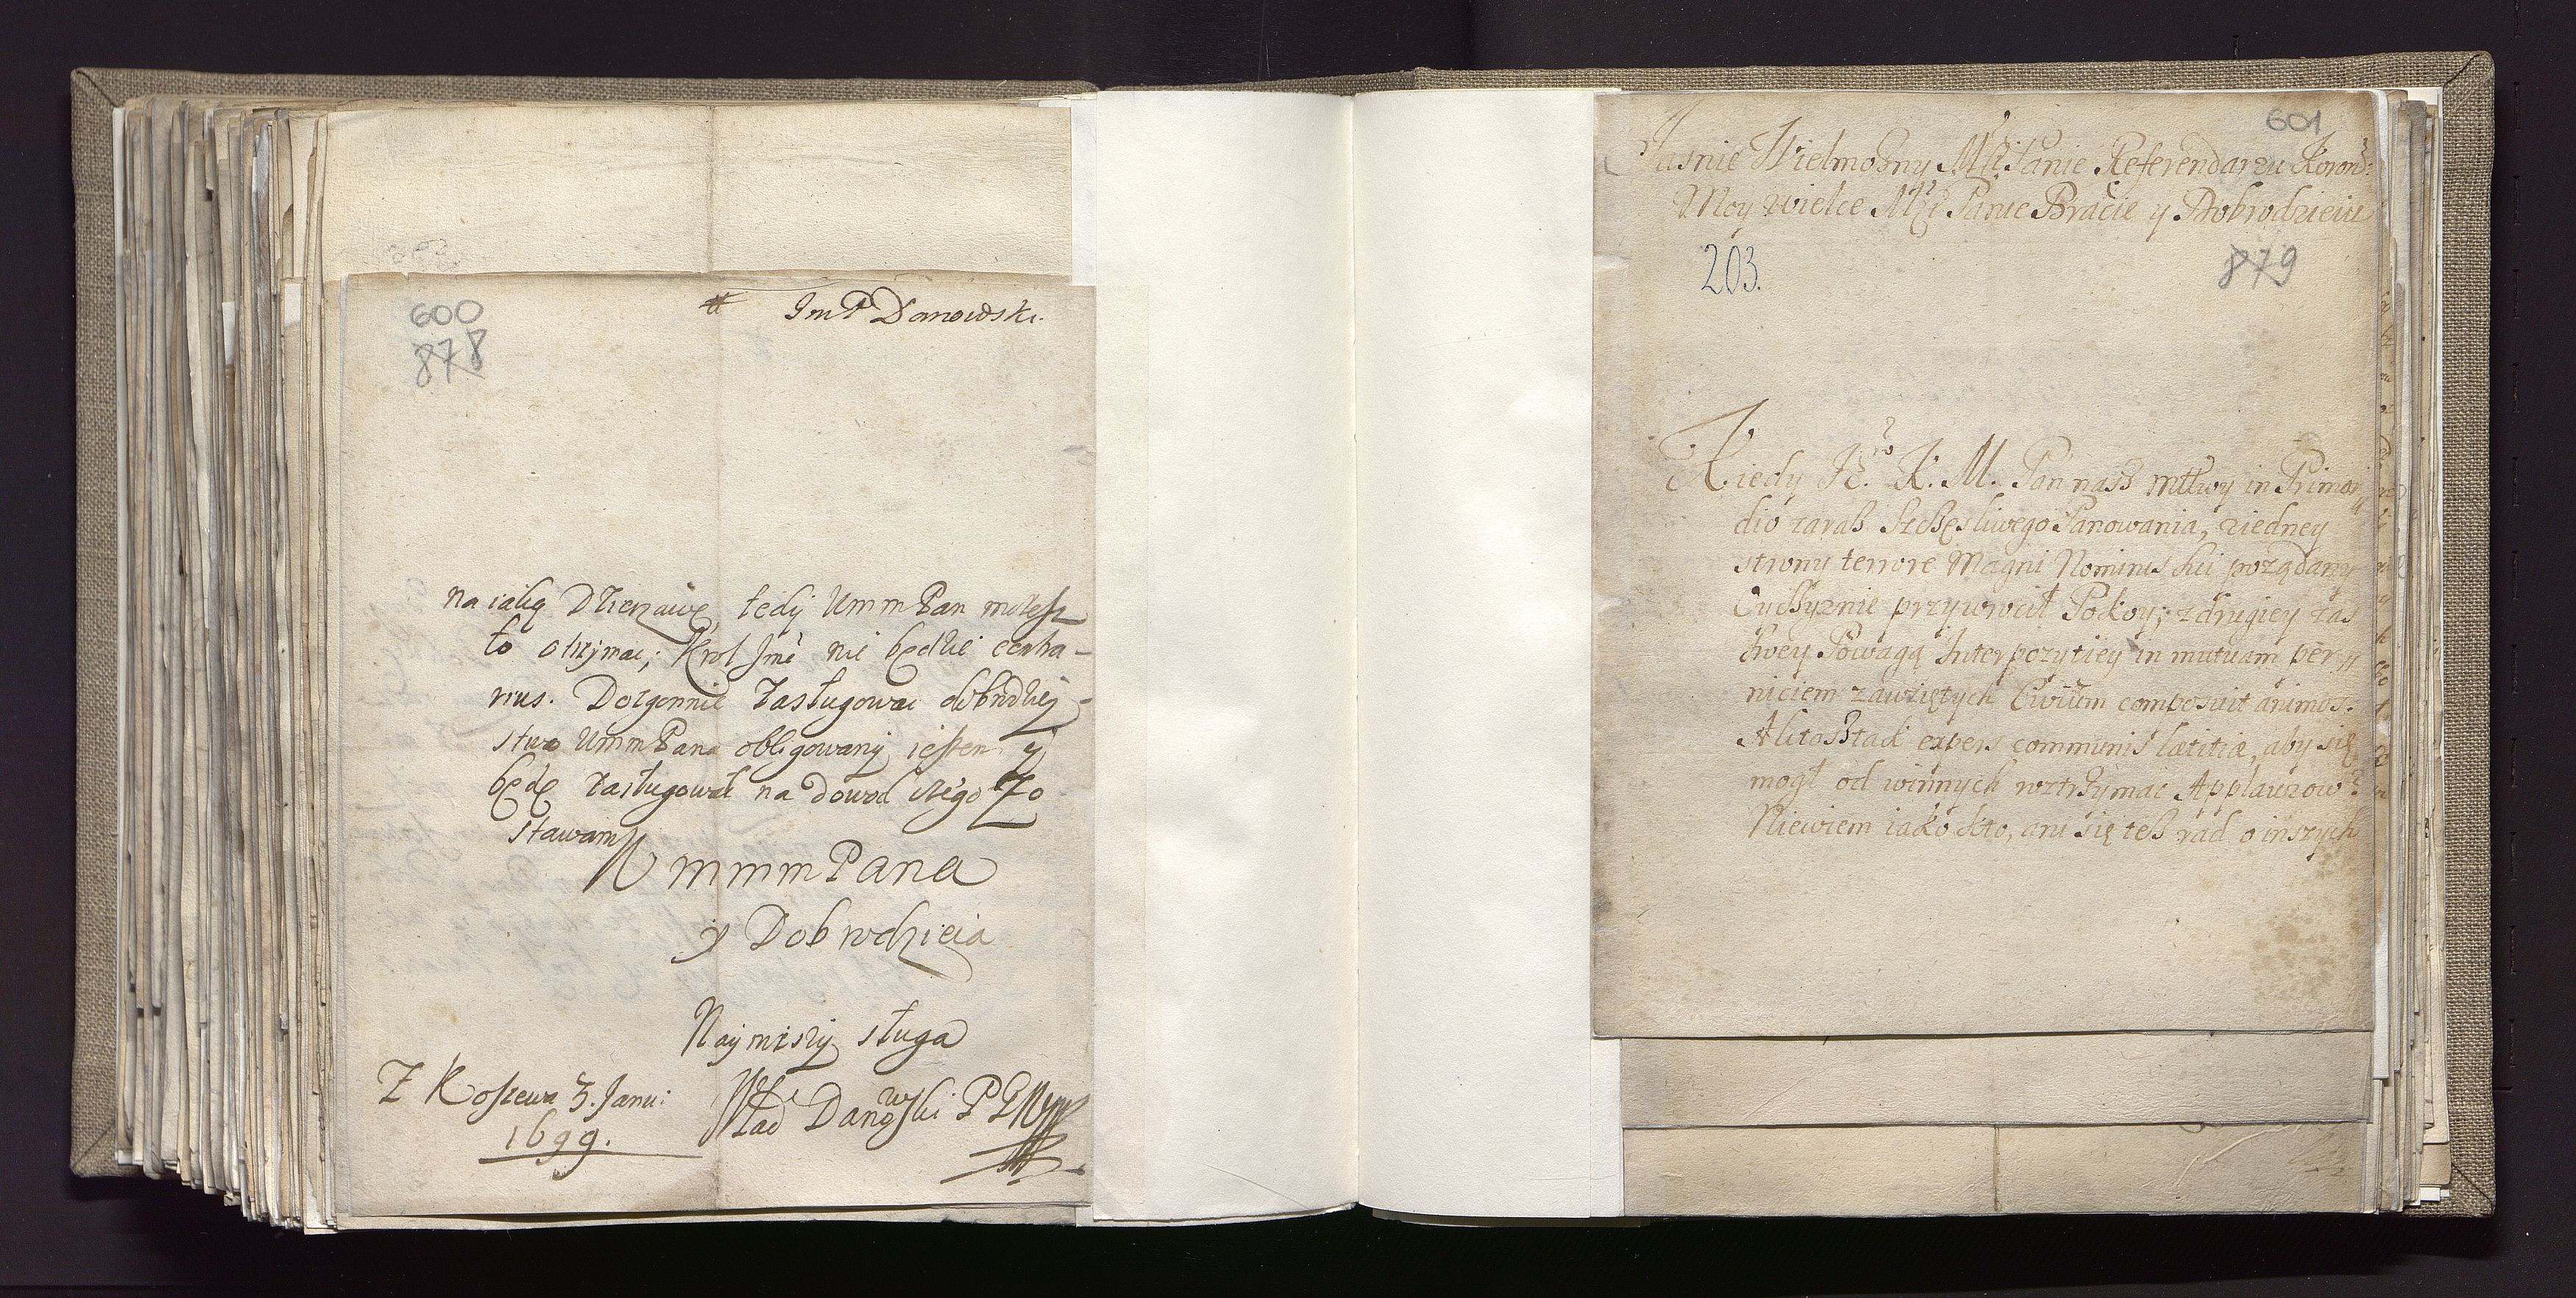 600
878
# Im P Danowski.
na całą Dzierzawę, tedy Ummm Pan możesz
to otrzymac; Krol Jmć nie będzie contra-
rius. Dozgonnie zasługowac dobrodziej-
stwo UmmPana obligowany iestem y
będę zasługował na dowod czego Zo
stawam
WmmmPana
y Dobrodzieia
Nayniszy sługa
Z Koszewa 3. Janu:
1699.
Wład Danowski P
601
Jasnie Wielmozny Mći Panie Referendarzu Koron:
Moy wielce Mći Panie Bracie y Dobrodzieiu
203.
879
Kiedy K. M. Pan nasz miłłwy in Primor„
dio zaraz Szczęsliwego Panowania, ziedney
strony terrore Magni Nominis sui pożądany
Oyczyznie przywrocił Pokoy; z drugiey zas
swey Powagą Interpozytiey in mutuam per„
niciem zawziętych Civium composuit animos.
A litosztad expers communis lætitiæ, aby się
mogł od winnych wztrzymac Applauzow?
Niewiem iako kto, ani się tesz rad o inszych